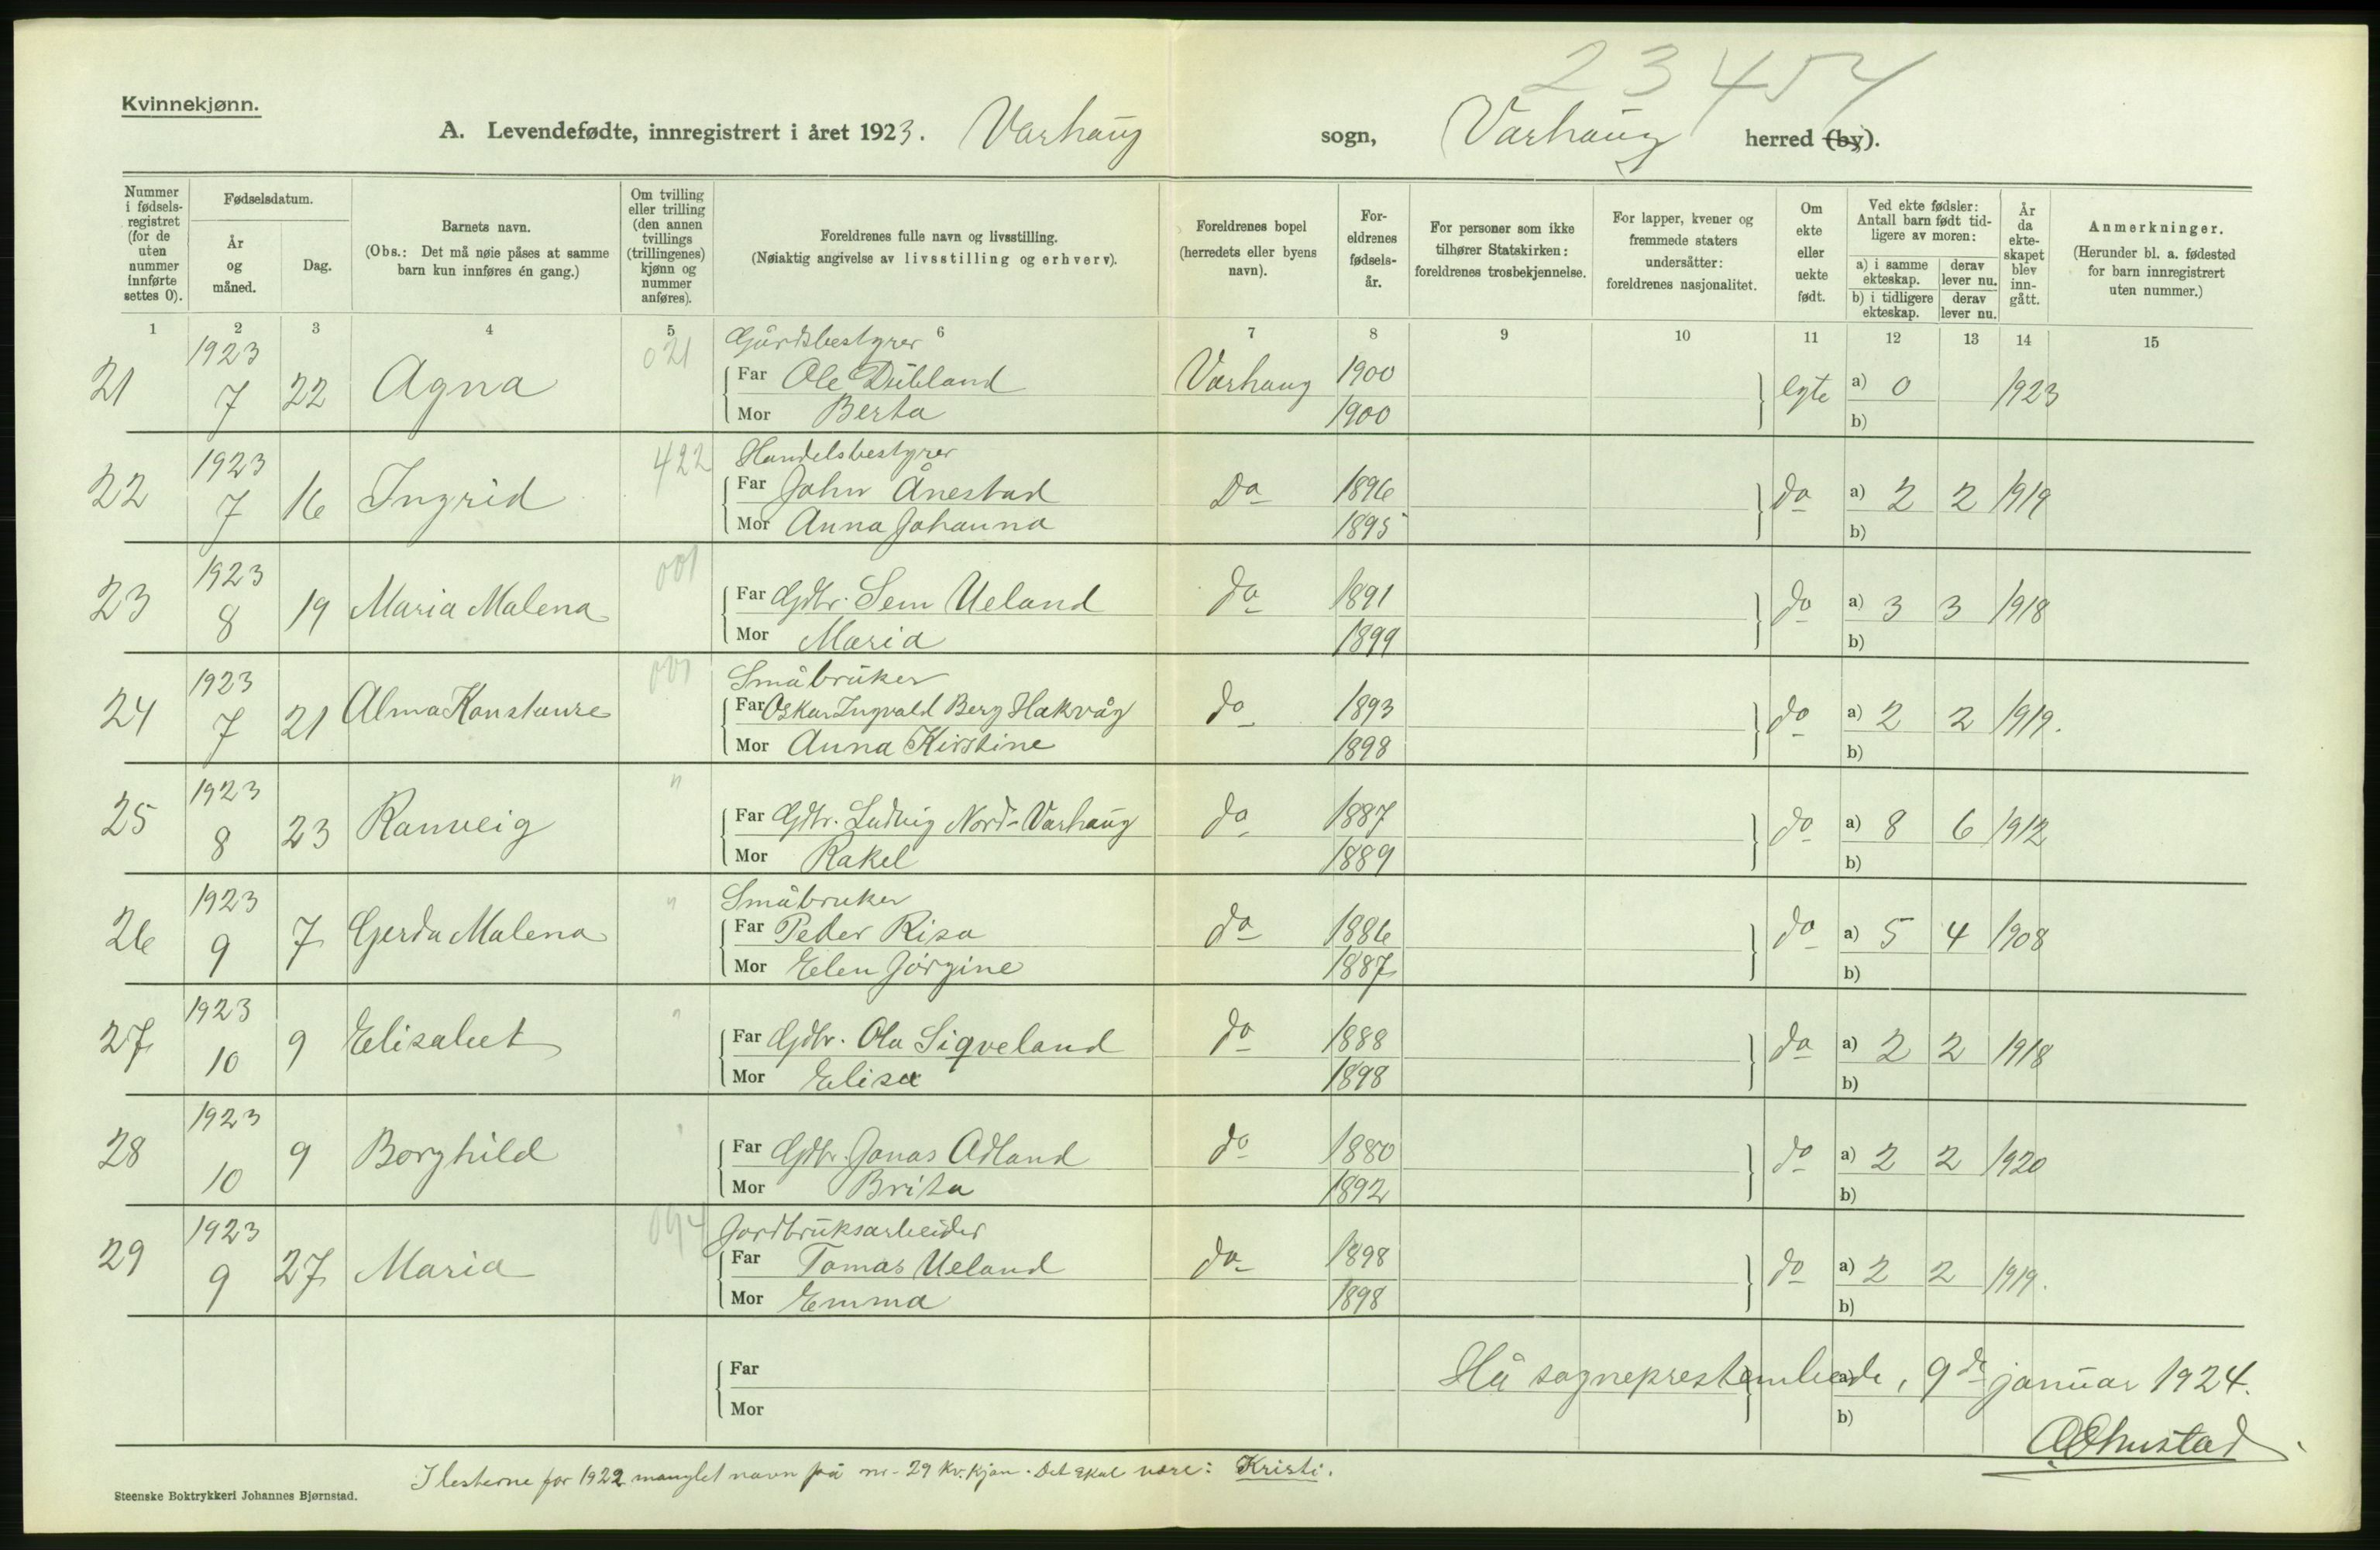 23454
Kvinnekjønn.
A. Levendefødte, innregistrert i året 1923. Varhaug sogn, Varhaug herred (by).
Nummer i fødsels-registret (for de uten nummer innførte settes 0).
Fødselsdatum.
År og måned.
Dag.
Barnets navn.
(Obs.: Det må nøie påses at samme barn kun innføres én gang.)
Om tvilling eller trilling (den annen tvillings (trillingenes) kjønn og nummer anføres).
Foreldrenes fulle navn og livsstilling.
(Nøiaktig angivelse av livsstilling og erhverv).
Foreldrenes bopel (herredets eller byens navn).
For-eldrenes fødsels-år.
For personer som ikke tilhører Statskirken: foreldrenes trosbekjennelse.
For lapper, kvener og fremmede staters undersåtter: foreldrenes nasjonalitet.
Om ekte eller uekte født.
Ved ekte fødsler: Antall barn født tid-ligere av moren:
a) i samme ekteskap. derav lever nu.
b) i tidligere ekteskap. derav lever nu.
År da ekte-skapet blev inn-gått.
Anmerkninger.
(Herunder bl. a. fødested for barn innregistrert uten nummer.)
1 2 3 4 5 6 7 8 9 10 11 12 13 14 15
1923 021 Gårdsbestyrer
21 7 22 Agna Far Ole Dubland Varhaug 1900 egte a) 0 1923
Mor Berta 1900 b)
1923 422 Handelsbestyrer
22 7 16 Ingrid Far John Ånestad Do 1896 do a) 2 2 1919
Mor Anna Johanna 1895 b)
1923 001
23 8 19 Maria Malena Far Gdbr. Sem Ueland do 1891 do a) 3 3 1918
Mor Maria 1899 b)
1923 001 Småbruker
24 7 21 Alma Konstanse Far Oskar Ingvald Berg Hakvåg do 1893 do a) 2 2 1919.
Mor Anna Kirstine 1898 b)
1923 "
25 8 23 Ranveig Far Gdbr. Ludvig Nord-Varhaug do 1887 do a) 8 6 1912
Mor Rakel 1889 b)
1923 " Småbruker
26 9 7 Gerda Malena Far Peder Risa do 1886 do a) 5 4 1908
Mor Elen Jørgine 1887 b)
1923 "
27 10 9 Elisabet Far Gdbr. Ola Sigveland do 1888 do a) 2 2 1918
Mor Elisa 1898 b)
1923
28 10 9 Borghild Far Gdbr. Jonas Adland do 1880 do a) 2 2 1920
Mor Brita 1892 b)
1923 094 Jordbruksarbeider
29 9 27 Maria Far Tomas Ueland do 1898 do a) 2 2 1919.
Mor Emma 1898 b)
Far a)
Mor b)
Hå sogneprestembede, 9de januar 1924.
I listerne for 1922 manglet navn på nr. 29 kv.kjøn. Det skal være: Kristi.
Steenske Boktrykkeri Johannes Bjørnstad.